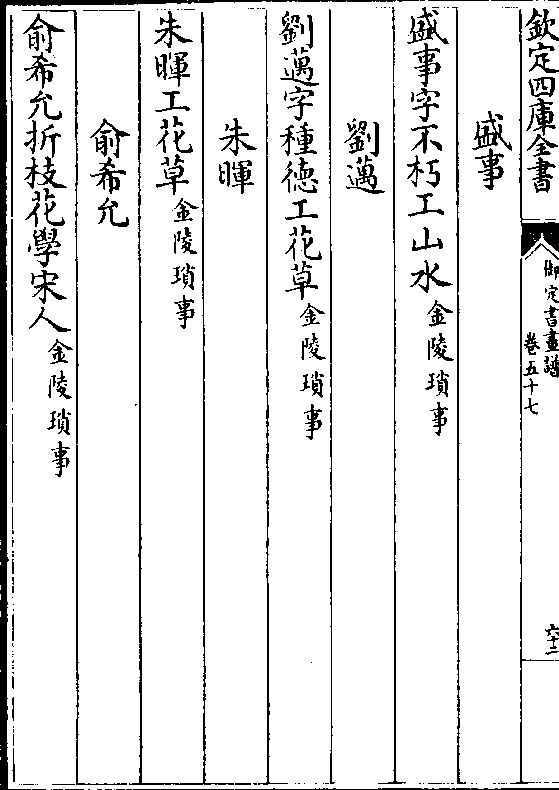 欽定四庫全書
御定書畫譜
卷五十七
六十二
盛事
盛事字不朽工山水金陵瑣事
劉邁
劉邁字種徳工花草金陵瑣事
朱暉
朱暉工花草金陵瑣事
俞希允
俞希允折枝花學宋人金陵瑣事